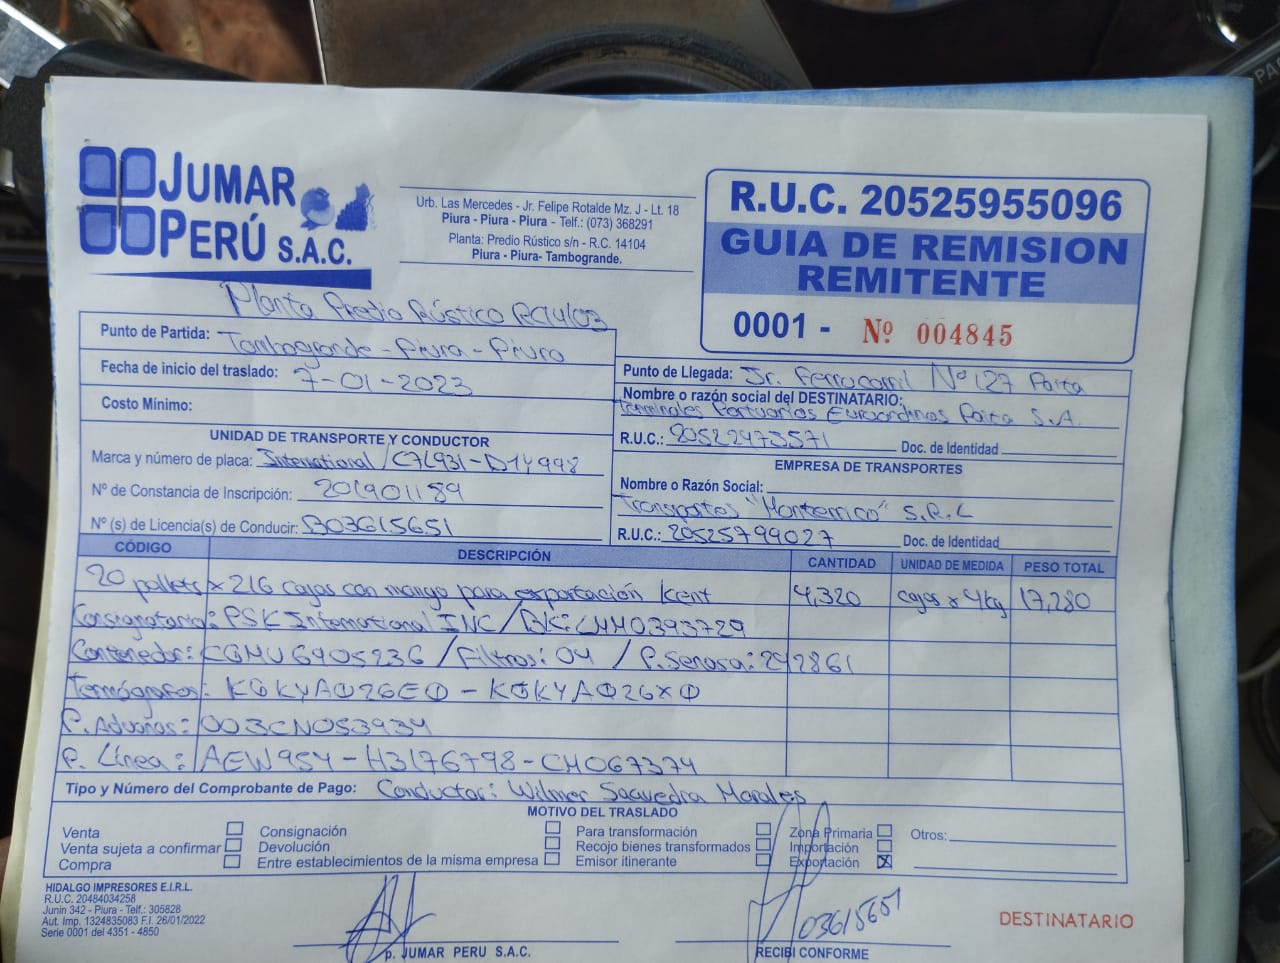 JUMAR
PERÚ S.A.C.
Urb. Las Mercedes - Jr. Felipe Rotalde Mz. J - Lt. 18
Piura - Piura - Piura - Telf.: (073) 368291
Planta: Predio Rústico s/n - R.C. 14104
Piura - Piura- Tambogrande.
R.U.C. 20525955096
GUIA DE REMISION
REMITENTE
0001 - Nº 004845
Planta Predio Rústico RC14103
Punto de Partida: Tambogrande - Piura - Piura
Fecha de inicio del traslado: 7-01-2023
Costo Mínimo:
Punto de Llegada: Jr. Ferrocarril Nº 127 Paita
Nombre o razón social del DESTINATARIO:
Terminales Portuarios Euroandinos Paita S.A.
R.U.C.: 20522473571 Doc. de Identidad
UNIDAD DE TRANSPORTE Y CONDUCTOR
Marca y número de placa: International / C7L931-D1Y998
Nº de Constancia de Inscripción: 201901189
Nº (s) de Licencia(s) de Conducir: B03615651
EMPRESA DE TRANSPORTES
Nombre o Razón Social:
Transportes "Monterrico" S.R.L
R.U.C.: 20525799027 Doc. de Identidad
CÓDIGO DESCRIPCIÓN CANTIDAD UNIDAD DE MEDIDA PESO TOTAL
20 pallets x 216 cajas con mango para exportación Kent 4,320 cajas x 4kg 17,280
Consignatario: PSK International INC / BK: LMM0393729
Contenedor: CGMU6905236 / Filtros: 04 / P. Senasa: 242861
Termógrafos: KGKYA026E0 - KGKYA026X0
P. Aduanas: 003CN053934
P. Línea: AEW954 - H3176798 - CH067374
Tipo y Número del Comprobante de Pago: Conductor: Wilmer Saavedra Morales
MOTIVO DEL TRASLADO
Venta Consignación Para transformación Zona Primaria Otros:
Venta sujeta a confirmar Devolución Recojo bienes transformados Importación
Compra Entre establecimientos de la misma empresa Emisor itinerante Exportación X
HIDALGO IMPRESORES E.I.R.L.
R.U.C. 20484034258
Junin 342 - Piura - Telf.: 305828
Aut. Imp. 1324835083 F.I. 26/01/2022
Serie 0001 del 4351 - 4850
p. JUMAR PERU S.A.C.
03615651
RECIBI CONFORME
DESTINATARIO